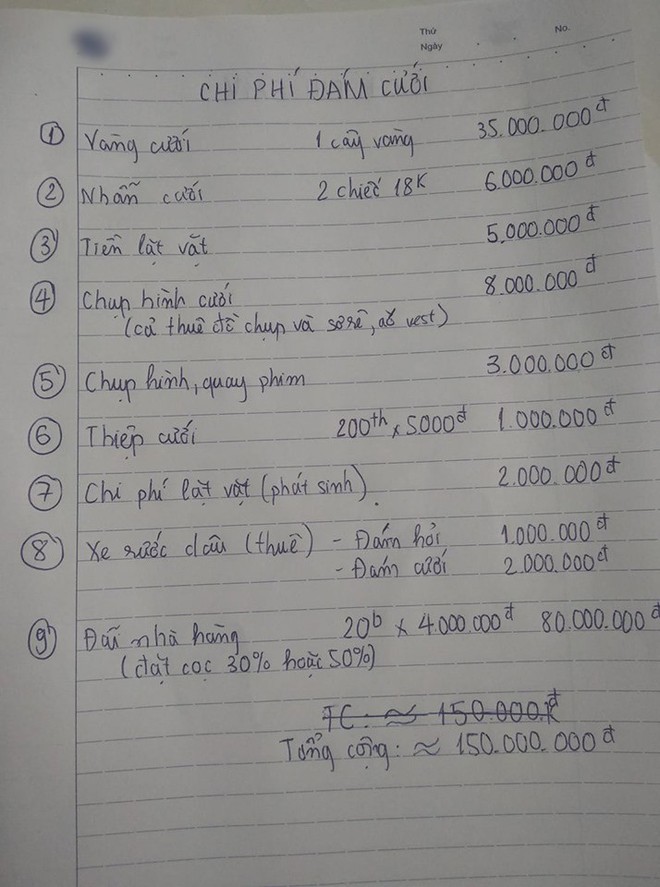 Thứ
Ngày
No.
CHI PHÍ ĐÁM CƯỚI
① Vàng cưới 1 cây vàng 35.000.000đ
② Nhẫn cưới 2 chiếc 18K 6.000.000đ
③ Tiền lặt vặt 5.000.000đ
④ Chụp hình cưới 8.000.000đ
(cả thuê đồ chụp và sơrê, áo vest)
⑤ Chụp hình, quay phim 3.000.000đ
⑥ Thiệp cưới 200th x 5000đ 1.000.000đ
⑦ Chi phí lặt vặt (phát sinh). 2.000.000đ
⑧ Xe rước dâu (thuê) - Đám hỏi 1.000.000đ
- Đám cưới 2.000.000đ
⑨ Đãi nhà hàng 20b x 4.000.000đ 80.000.000đ
(đặt cọc 30% hoặc 50%)
TC: ≈ 150.000K đ
Tổng cộng: ≈ 150.000.000đ